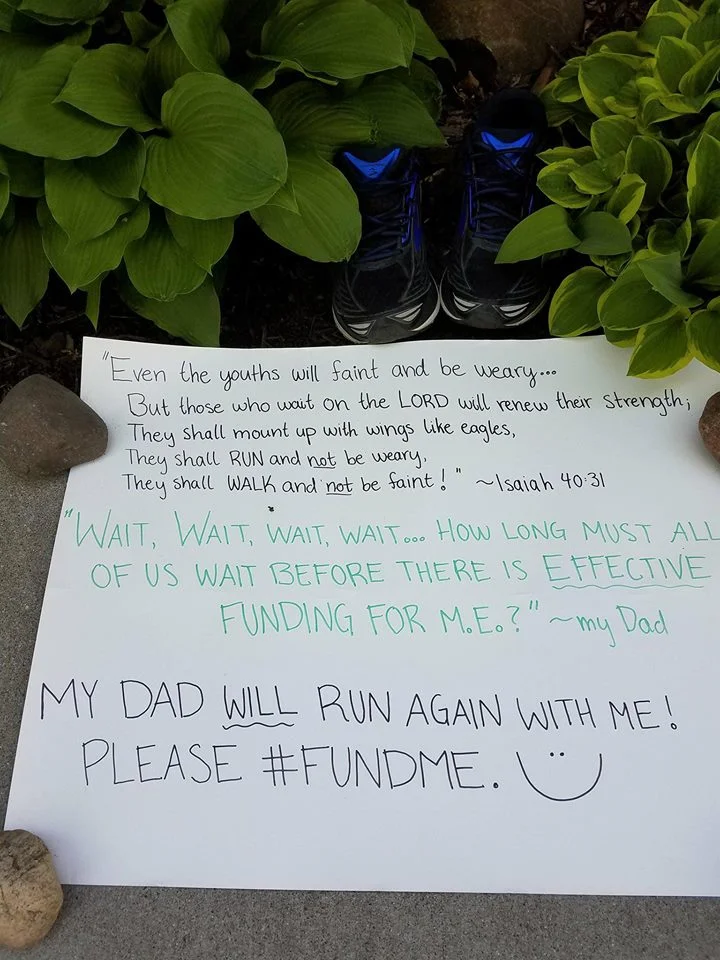 "Even the youths will faint and be weary...
But those who wait on the LORD will renew their strength;
They shall mount up with wings like eagles,
They shall RUN and not be weary,
They shall WALK and not be faint!" ~Isaiah 40:31
"WAIT, WAIT, WAIT, WAIT... HOW LONG MUST ALL
OF US WAIT BEFORE THERE IS EFFECTIVE
FUNDING FOR M.E.?" ~my Dad
MY DAD WILL RUN AGAIN WITH ME!
PLEASE #FUNDME.